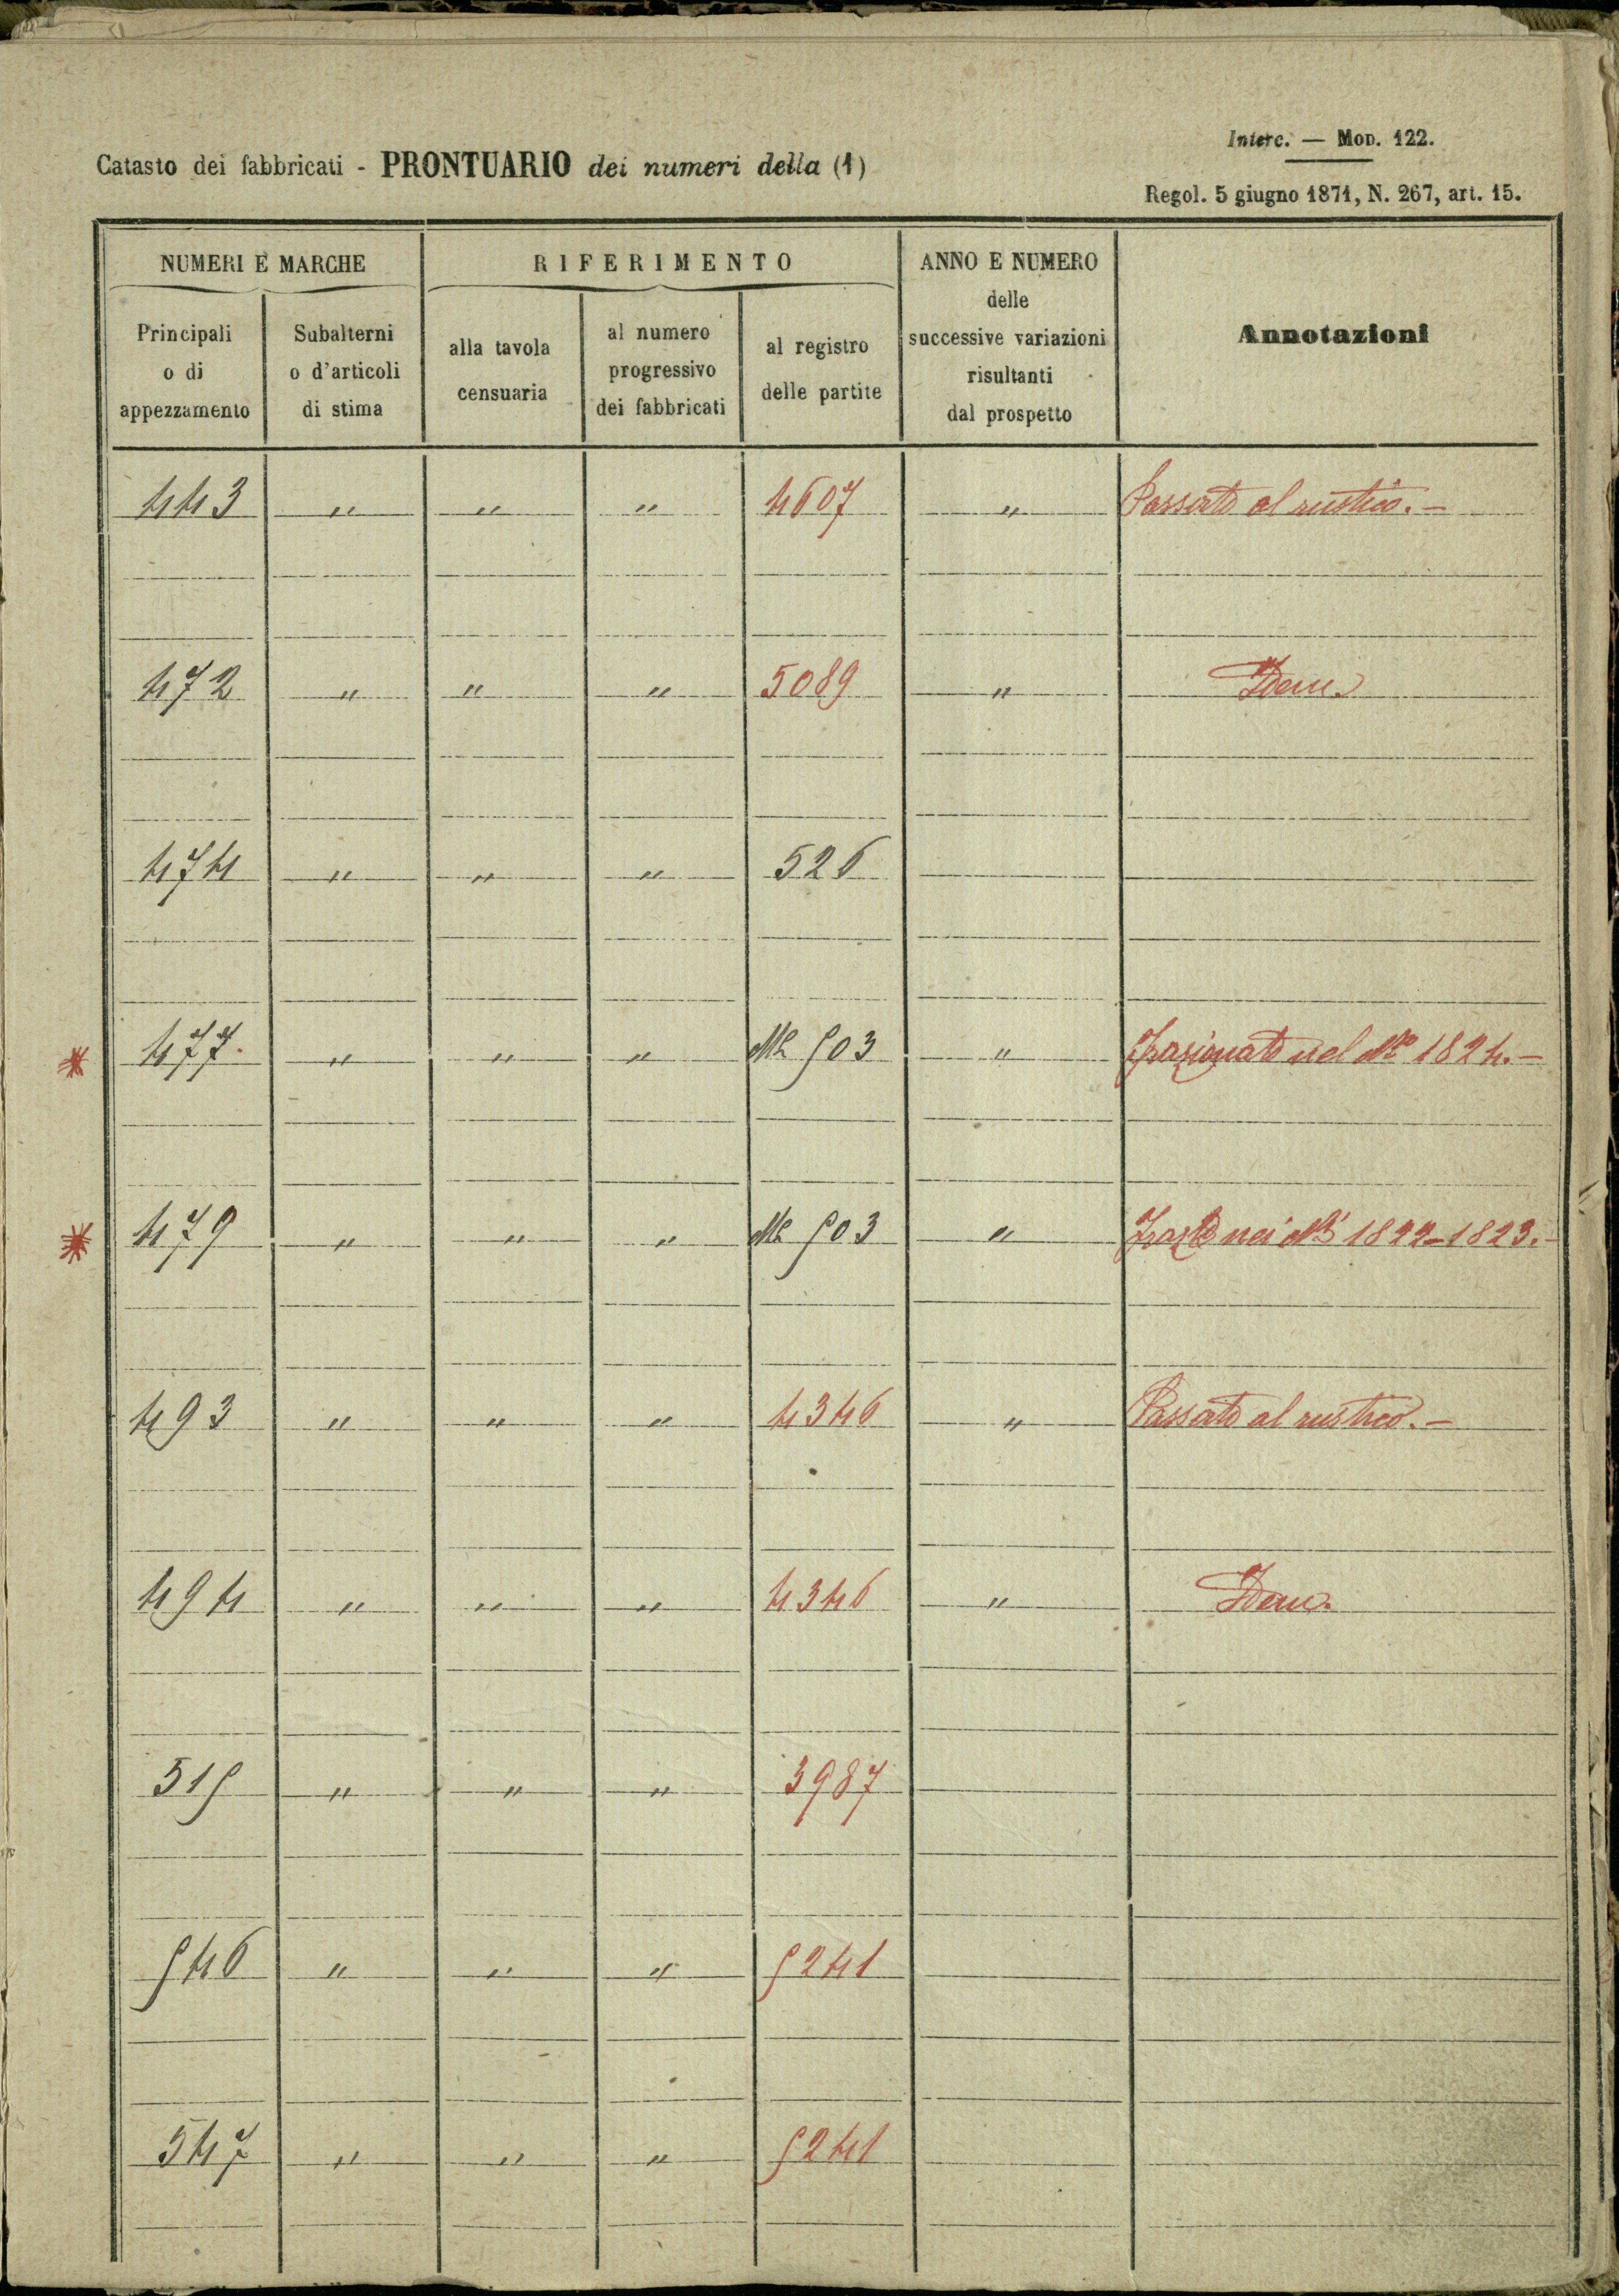 Interc. — Mod. 122.
Catasto dei fabbricati - PRONTUARIO dei numeri della (1)
Regol. 5 giugno 1871, N. 267, art. 15.
NUMERI E MARCHE
RIFERIMENTO
ANNO E NUMERO
delle
successive variazioni
risultanti
dal prospetto
Annotazioni
Principali
o di
appezzamento
Subalterni
o d'articoli
di stima
alla tavola
censuaria
al numero
progressivo
dei fabbricati
al registro
delle partite
443 " " " 4607 " Passato al rustico.-
472 " " " 5089 " Idem.
474 " " " 526
477. " " " 503 " Frazionato nel N.° 1824.-
479 " " " 503 " nei Ni 1822-1823.-
493 " " " 4346 " Passato al rustico.-
494 " " " 4346 " Idem.
515 " " " 3987
546 " " " 5241
547 " " " 5241